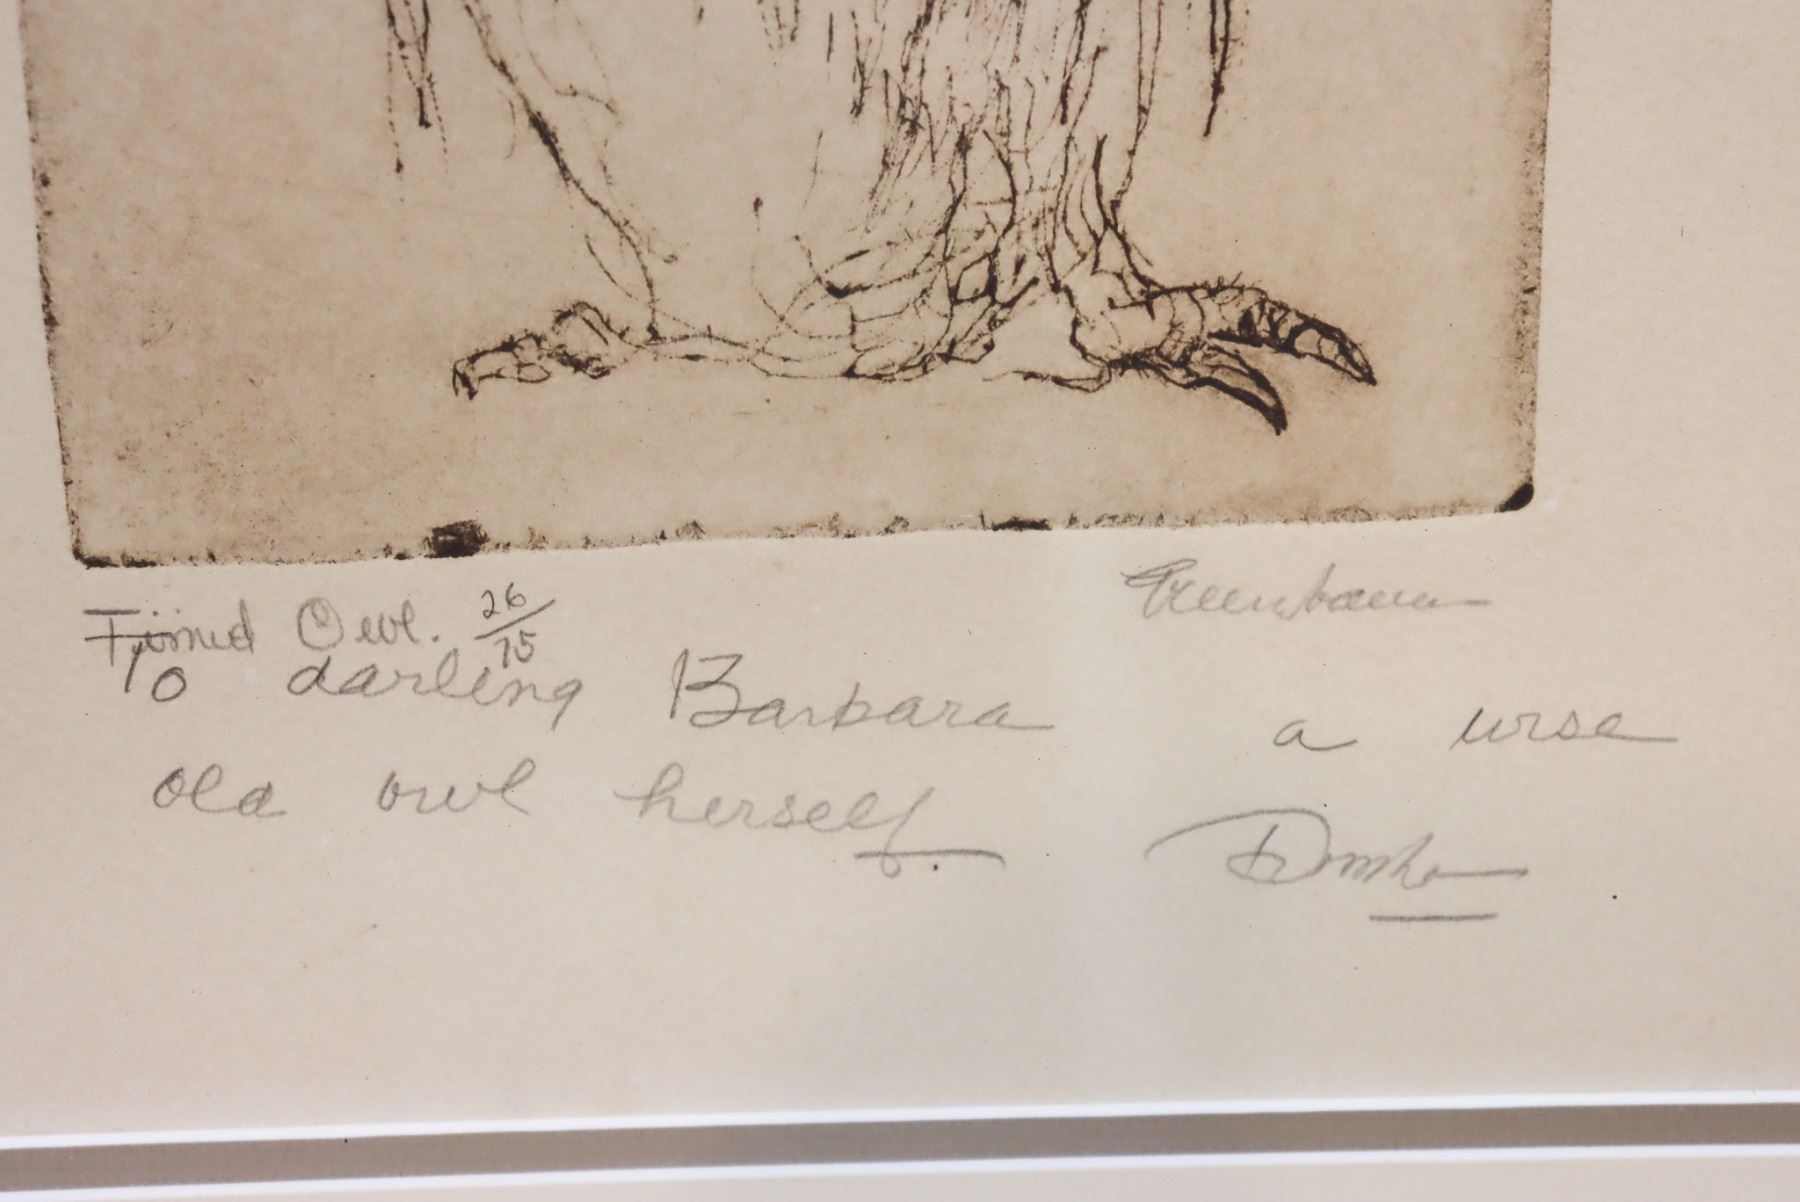 Timid Owl. 26/75 Greenbaum
To darling Barbara a wise
old owl herself.